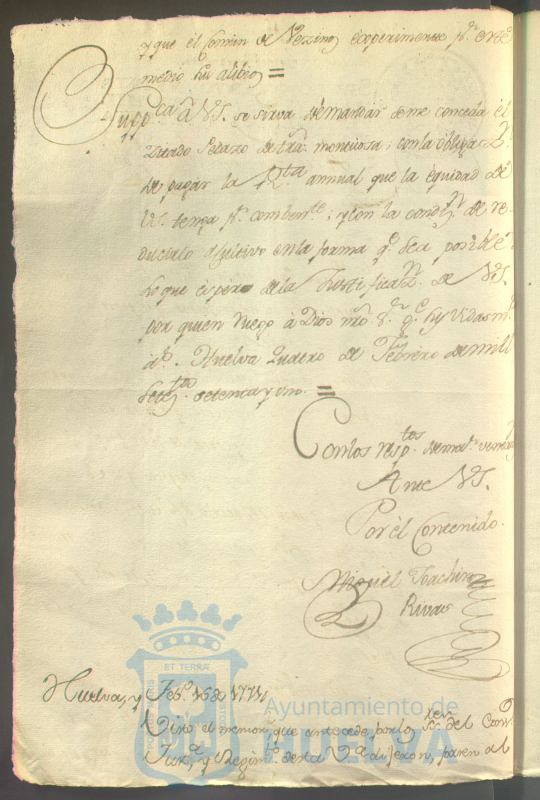 y que el Comun de Vezinos experimente pr. este
medio su alibio =
Supca. a VS. se sirva de mandar se me conceda el
zitado Pedazo de trra. montuosa, con la obligazn.
de pagar la Rta. annual que la equidad de
VS. tenga pr. combente. y con la condizn. de re-
ducirlo a cultivo en la forma qe. sea posible
Lo que espera de la Justificazn. de VS.
por quien Ruego à Dios nro Sr. ge. su vida ms.
as. Huelva quatro de Febrero de mill
setectos. setenta y uno. =
Con los respectos de mi
Ante VS.
Por el Contenido.
Miguel Joachin
Rivas
Huelva, y Febo. 16 de 1771
Visto el memorl. que antecede por los Sres. del Conzo.
Jusa. y Regimto. desta Va. dijeron, pasen al
ET TERRÆ
Ayuntamiento de
HUELVA